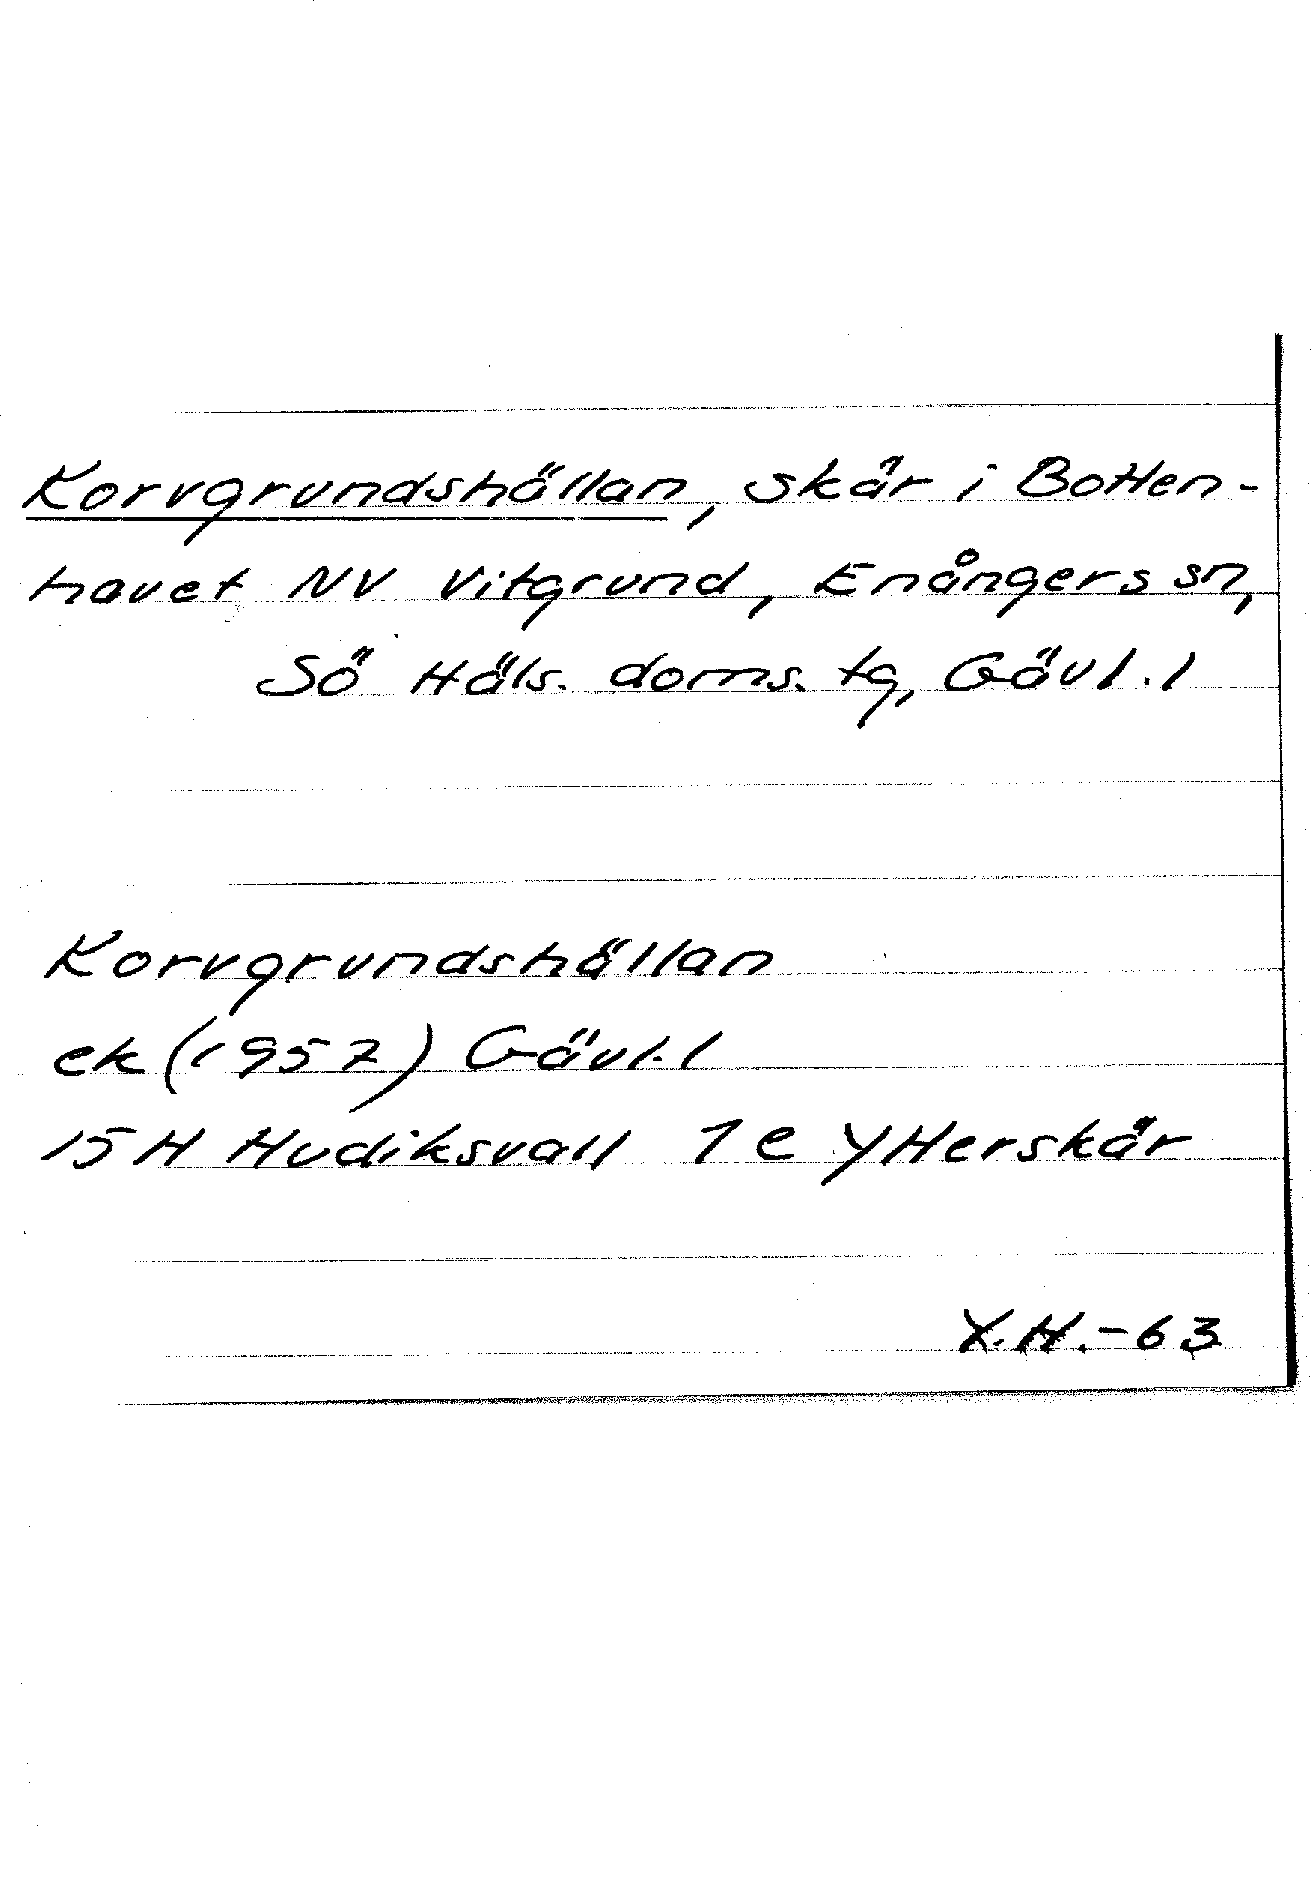 Korvgrundshällan, skär i Botten-
havet NV Vitgrund, Enångers sn,
Sö Häls. doms. tg, Gävl. l
Korvgrundshällan
ek (1957) Gävl. l
15 H Hudiksvall 1 e Ytterskär
Y.H.-63